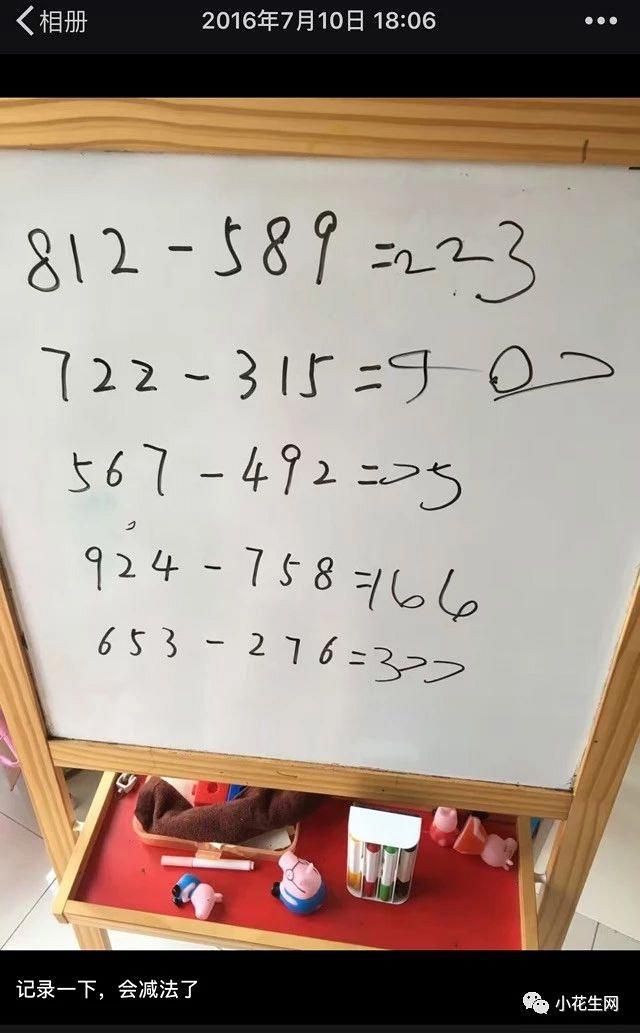 相册 2016年7月10日 18:06
812-589=223
722-315=407
567-492=75
924-758=166
653-276=377
记录一下，会减法了
小花生网